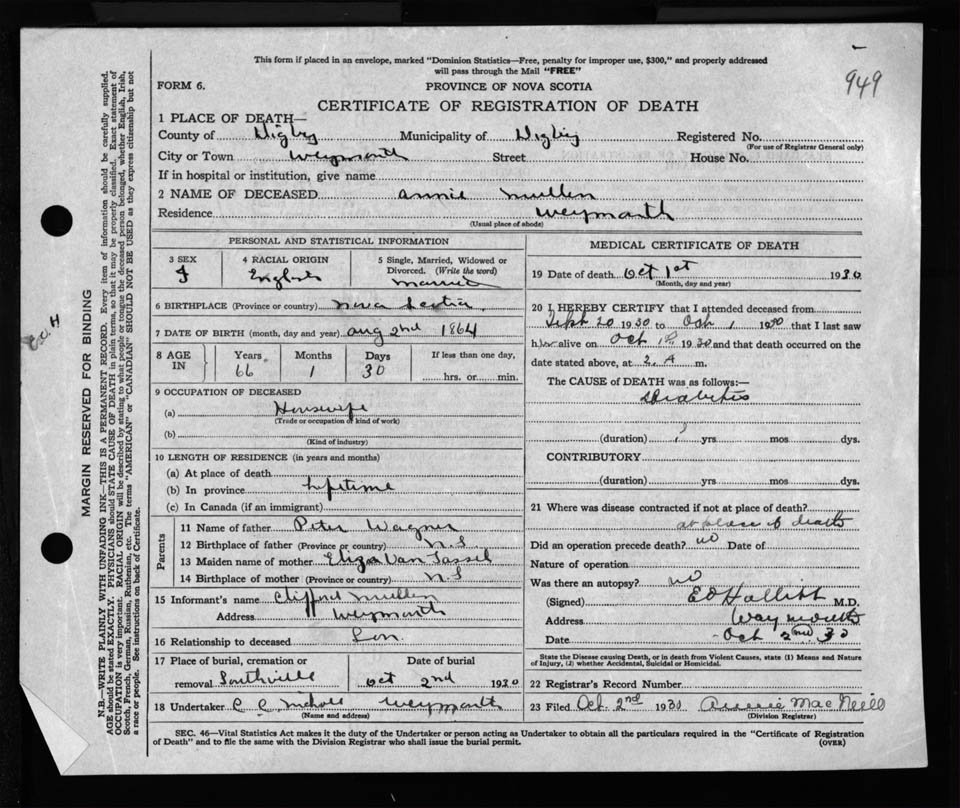 This form if placed in an envelope, marked "Dominion Statistics—Free, penalty for improper use, $300," and properly addressed
will pass through the Mail "FREE"
949
FORM 6.
PROVINCE OF NOVA SCOTIA
CERTIFICATE OF REGISTRATION OF DEATH
1 PLACE OF DEATH—
County of Digby Municipality of Digby Registered No.
(For use of Registrar General only)
City or Town Weymouth Street House No.
If in hospital or institution, give name
2 NAME OF DECEASED Annie Mullen
Residence Weymouth
(Usual place of abode)
PERSONAL AND STATISTICAL INFORMATION
3 SEX F
4 RACIAL ORIGIN English
5 Single, Married, Widowed or Divorced. (Write the word) Married
6 BIRTHPLACE (Province or country) Nova Scotia
7 DATE OF BIRTH (month, day and year) Aug 2nd 1864
8 AGE IN Years 66 Months 1 Days 30 If less than one day, hrs. or min.
9 OCCUPATION OF DECEASED
(a) Housewife
(Trade or occupation or kind of work)
(b)
(Kind of industry)
10 LENGTH OF RESIDENCE (in years and months)
(a) At place of death
(b) In province lifetime
(c) In Canada (if an immigrant)
Parents
11 Name of father Peter Wagner
12 Birthplace of father (Province or country) N.S
13 Maiden name of mother Eliza Van Tassel
14 Birthplace of mother (Province or country) N S
15 Informant's name Clifford Mullen
Address Weymouth
16 Relationship to deceased Son
17 Place of burial, cremation or removal Southville
Date of burial Oct 2nd 1930
18 Undertaker C C Nichols Weymouth
(Name and address)
MEDICAL CERTIFICATE OF DEATH
19 Date of death Oct 1st 1930
(Month, day and year)
20 I HEREBY CERTIFY that I attended deceased from
Sept 20 1930 to Oct 1 1930 that I last saw
her alive on Oct 1st 1930 and that death occurred on the
date stated above, at 2 A m.
The CAUSE of DEATH was as follows:—
Diabetis
(duration) yrs. mos. dys.
CONTRIBUTORY
(duration) yrs. mos. dys.
21 Where was disease contracted if not at place of death?
at place of death
Did an operation precede death? no Date of
Nature of operation
Was there an autopsy? no
(Signed) M.D.
Address Weymouth
Date Oct 2nd 30
State the Disease causing Death, or in death from Violent Causes, state (1) Means and Nature
of Injury, (2) whether Accidental, Suicidal or Homicidal.
22 Registrar's Record Number
23 Filed Oct. 2nd 1930 Annie MacNeill
(Division Registrar)
SEC. 46—Vital Statistics Act makes it the duty of the Undertaker or person acting as Undertaker to obtain all the particulars required in the "Certificate of Registration
of Death" and to file the same with the Division Registrar who shall issue the burial permit.
(OVER)
MARGIN RESERVED FOR BINDING
N.B.—WRITE PLAINLY WITH UNFADING INK—THIS IS A PERMANENT RECORD. Every item of information should be carefully supplied.
AGE should be stated EXACTLY. PHYSICIANS should STATE CAUSE OF DEATH in plain terms, so that it may be properly classified. Exact statement of
OCCUPATION is very important. RACIAL ORIGIN will be described by stating to what people or tongue the deceased person belonged, whether English, Irish,
Scotch, French, German, Russian, Ruthenian, etc. The terms "AMERICAN" or "CANADIAN" SHOULD NOT BE USED as they express citizenship but not
a race or people. See instructions on back of Certificate.